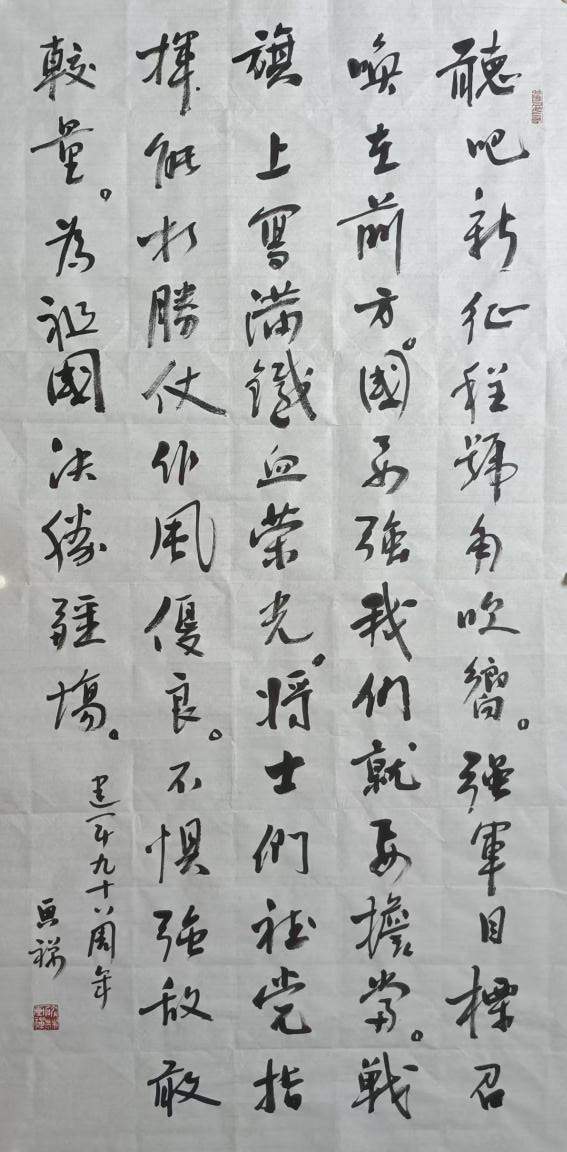 聽吧新征程號角吹嚮。强軍目標召
喚在前方。國要強我們就要擔當。戰
旗上寫滿鐵血荣光。将士們聽党指
揮能打勝仗作風優良。不惧強敌敢
較量。為祖國决勝疆場。
建军九十八周年